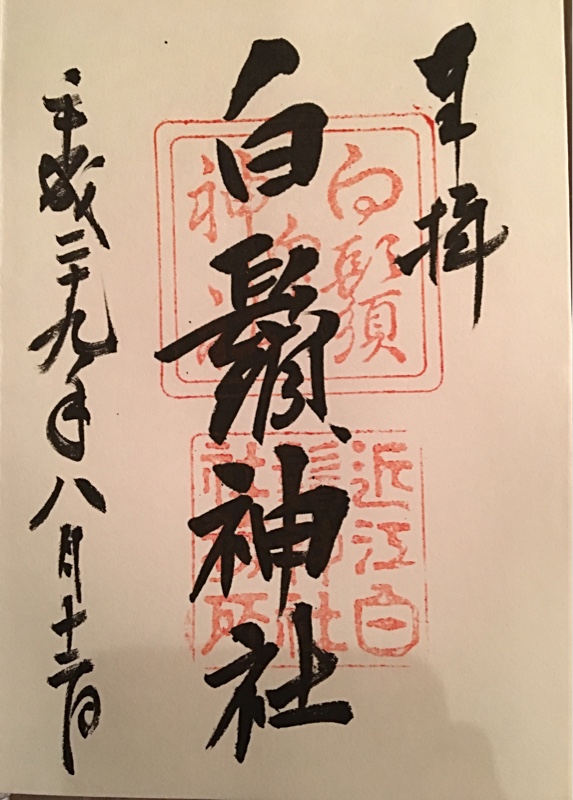 奉拝
白鬚神社
平成二十九年八月十日
白鬚
近江白
鬚神社
社務所